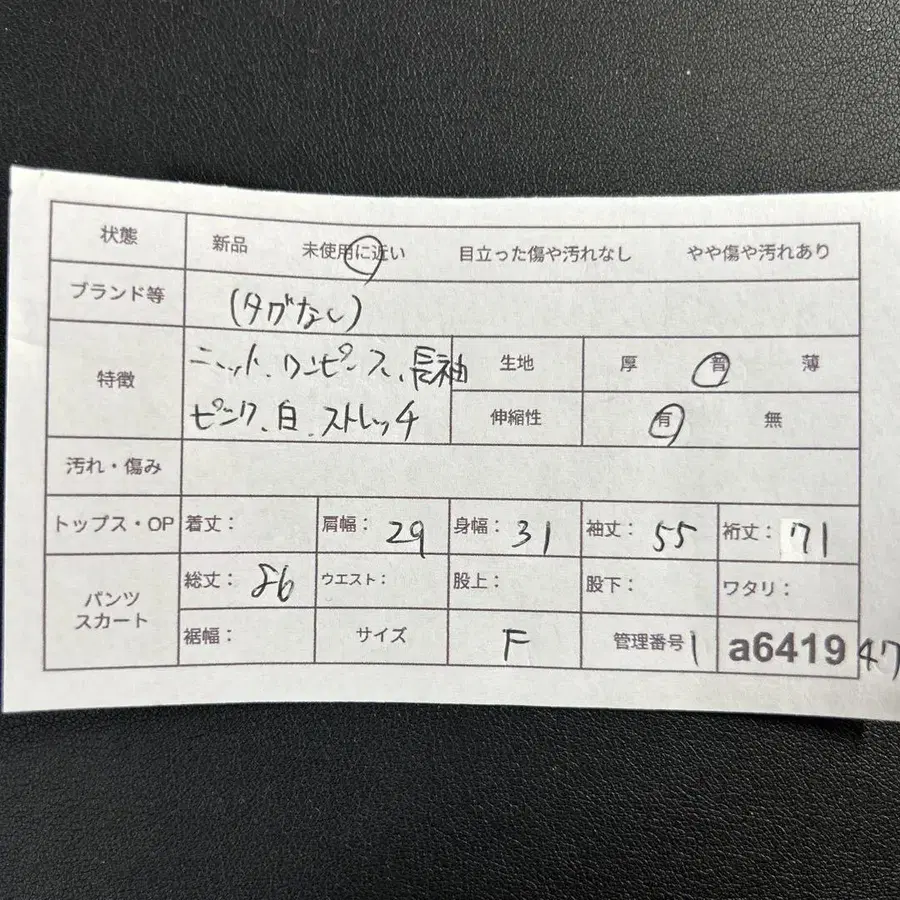 状態 新品 未使用に近い 目立った傷や汚れなし やや傷や汚れあり
ブランド等 (タグなし)
特徴 ニット、ワンピース、長袖 生地 厚 普 薄
ピンク、白、ストレッチ 伸縮性 有 無
汚れ・傷み
トップス・OP 着丈: 肩幅: 29 身幅: 31 袖丈: 55 裄丈: 71
パンツ スカート 総丈: 86 ウエスト: 股上: 股下: ワタリ:
裾幅: サイズ F 管理番号 1 a6419 47